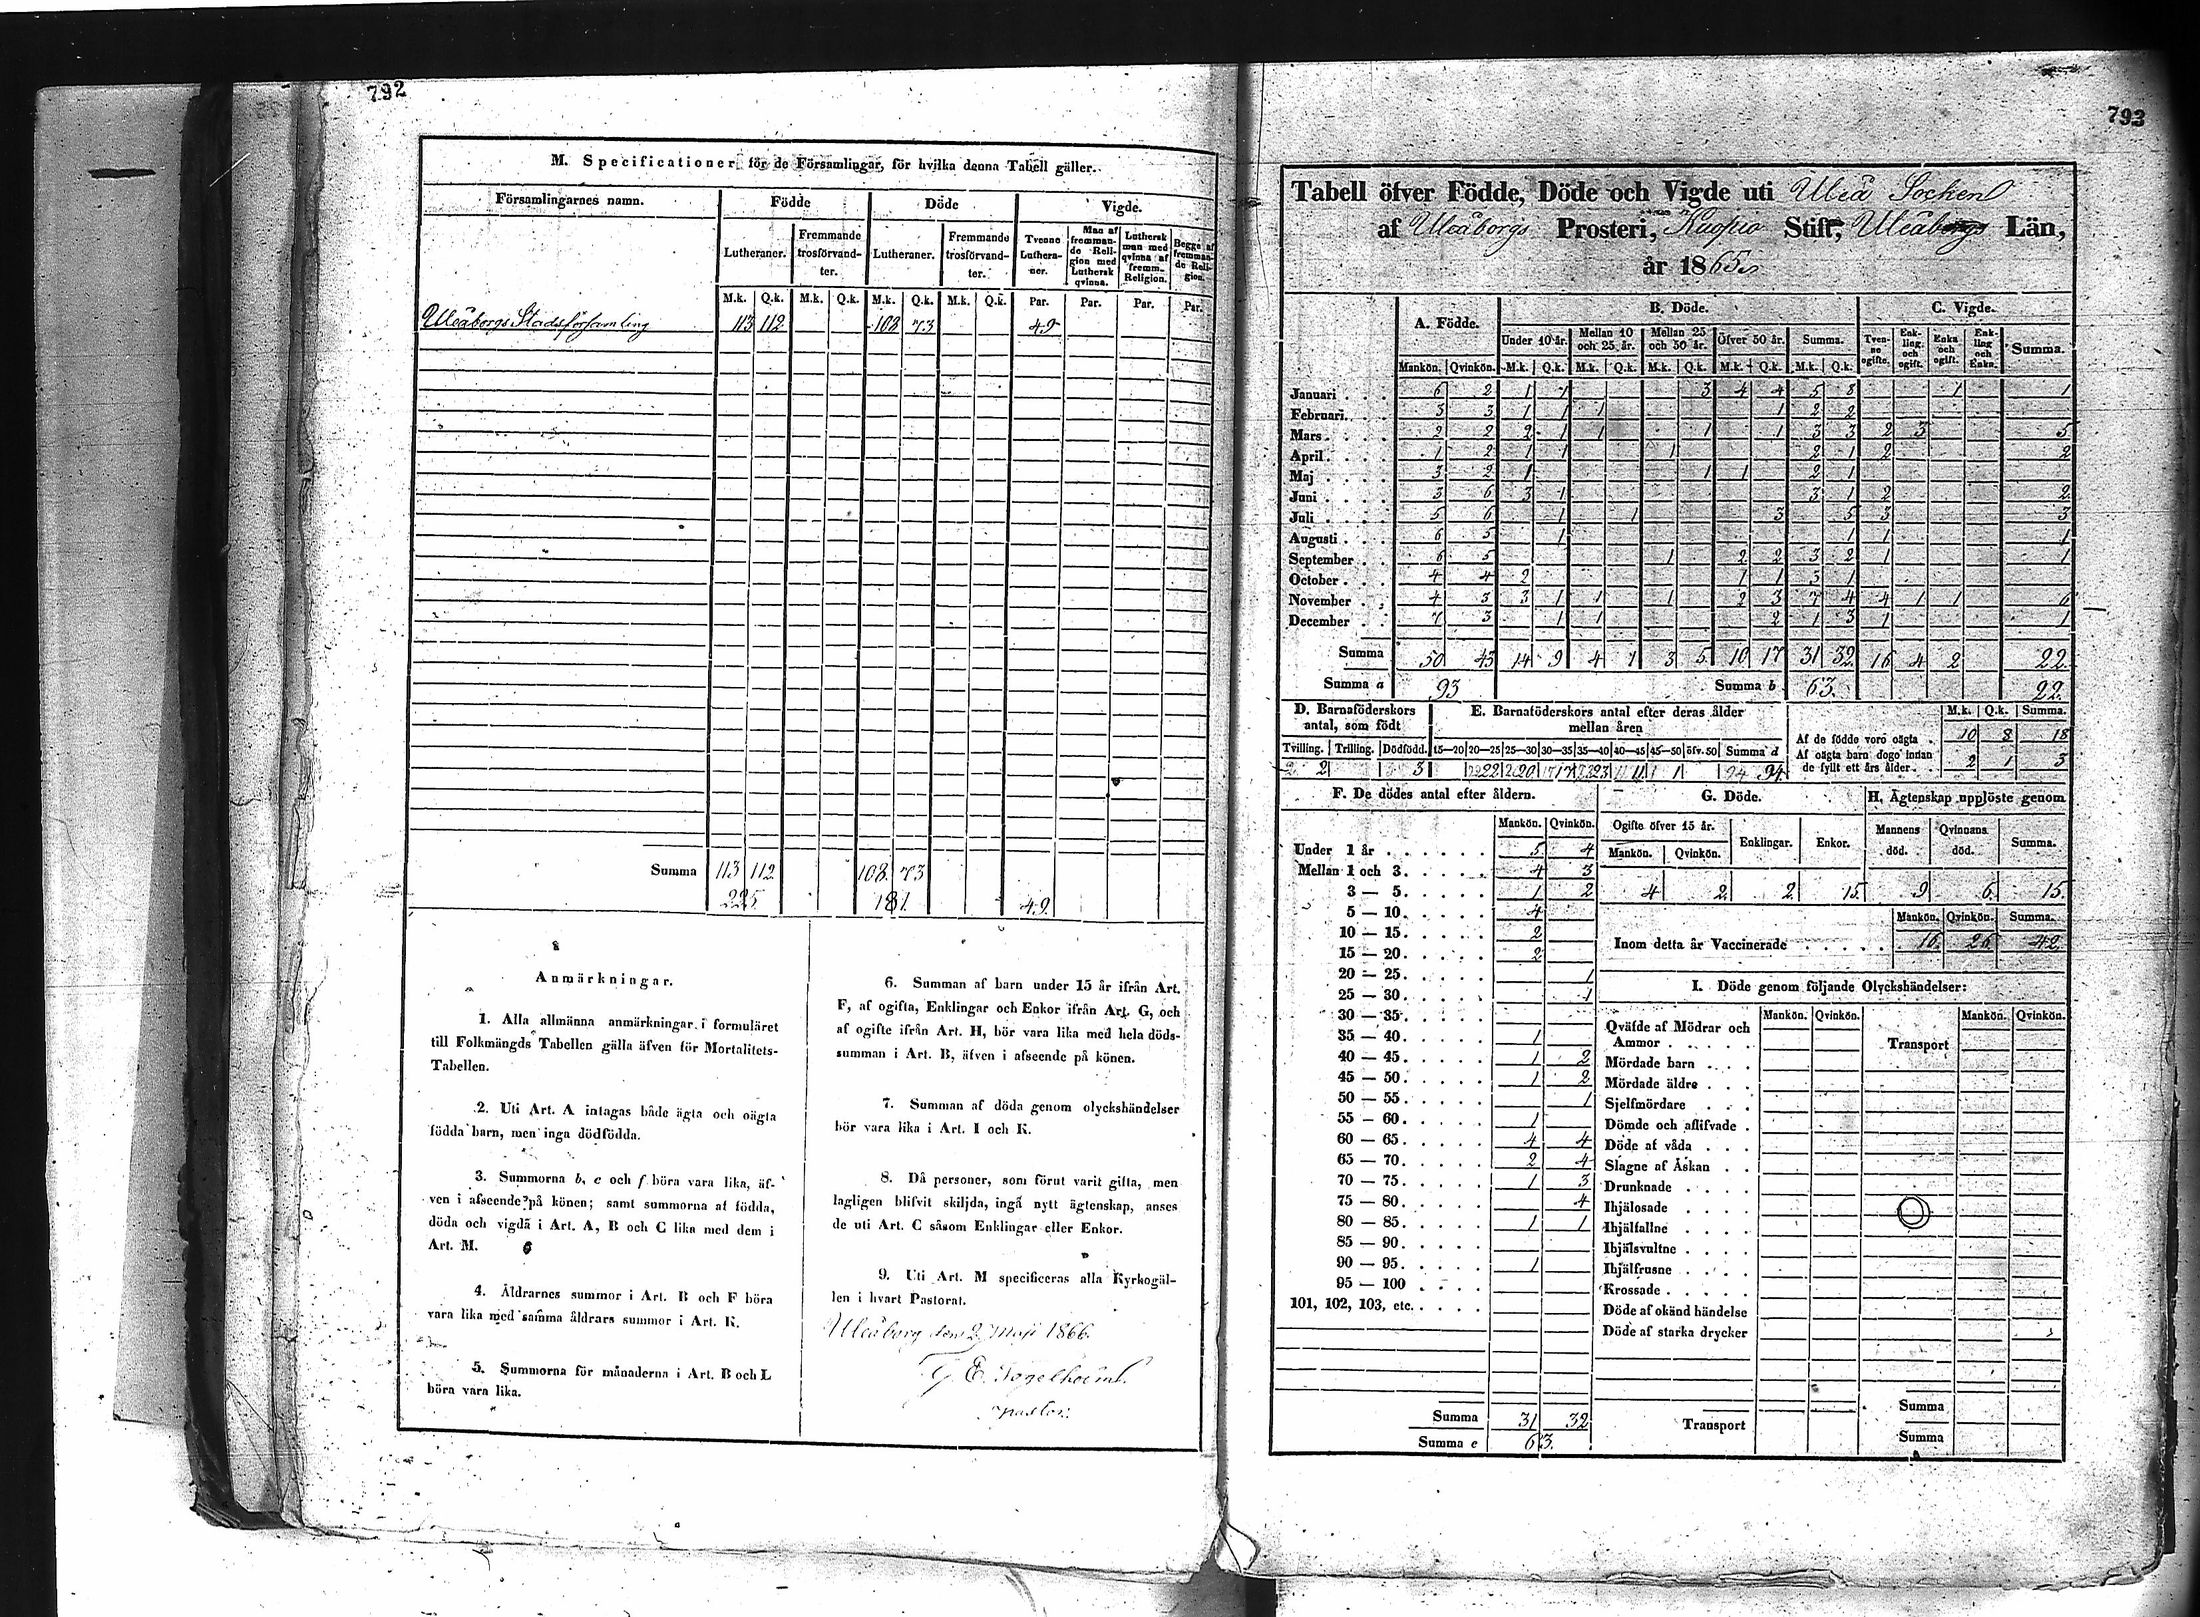 792
M. Specificationer för de Församlingar, för hvilka denna Tabell gäller.
Församlingarnes namn. Födde Döde Vigde.
Lutheraner. Fremmande trosförvandter. Lutheraner. Fremmande trosförvandter. Tvenne Lutheraner. Man af fremmande Religion med Luthersk qvinna. Luthersk man med qvinna af fremm. Religion. Begge af fremmande Religion.
M.k. Q.k. M.k. Q.k. M.k. Q.k. M.k. Q.k. Par. Par. Par. Par.
Uleåborgs Stadsförsamling 113 112 108 73 49
Summa 113 112 108 73
225 181 49
Anmärkningar.
1. Alla allmänna anmärkningar i formuläret
till Folkmängds Tabellen gälla äfven för Mortalitets-
Tabellen.
2. Uti Art. A intagas både ägta och oägta
födda barn, men inga dödfödda.
3. Summorna b, c och f böra vara lika, äf-
ven i afseende på könen; samt summorna af födda,
döda och vigda i Art. A, B och C lika med dem i
Art. M.
4. Åldrarnes summor i Art. B och F böra
vara lika med samma åldrars summor i Art. K.
5. Summorna för månaderna i Art. B och L
böra vara lika.
6. Summan af barn under 15 år ifrån Art.
F, af ogifta, Enklingar och Enkor ifrån Art. G, och
af ogifte ifrån Art. H, bör vara lika med hela döds-
summan i Art. B, äfven i afseende på könen.
7. Summan af döda genom olyckshändelser
bör vara lika i Art. I och K.
8. Då personer, som förut varit gifta, men
lagligen blifvit skiljda, ingå nytt ägtenskap, anses
de uti Art. C såsom Enklingar eller Enkor.
9. Uti Art. M specificeras alla Kyrkogäl-
len i hvart Pastorat.
Uleåborg den 2 Maji 1866.
pastor.
793
Tabell öfver Födde, Döde och Vigde uti Uleå Socken
af Uleåborgs Prosteri, Kuopio Stift, Uleåborgs Län,
år 1865
A. Födde. B. Döde. C. Vigde.
Under 10 år. Mellan 10 och 25 år. Mellan 25 och 50 år. Öfver 50 år. Summa. Tvenne ogifte. Enkling och ogift. Enka och ogift. Enkling och Enka. Summa.
Mankön. Qvinkön. M.k. Q.k. M.k. Q.k. M.k. Q.k. M.k. Q.k. M.k. Q.k.
Januari 6 2 1 1 3 4 4 5 8 1 1
Februari 3 3 1 1 1 1 2 2
Mars 2 2 2 1 1 1 1 3 3 2 3 5
April 1 2 1 1 1 2 1 2 2
Maj 3 2 1 1 1 2 1
Juni 3 6 3 1 3 1 2 2
Juli 5 6 1 1 3 5 3 3
Augusti 6 5 1 1 1 1
September 6 5 1 2 2 3 2 1 1
October 4 4 2 1 1 3 1
November 4 3 3 1 1 1 2 3 7 4 4 1 1 6
December 7 3 1 1 2 1 3 1 1
Summa 50 43 14 9 4 1 3 5 10 17 31 32 16 4 2 22
Summa a 93 Summa b 63. 22
D. Barnaföderskors antal, som födt
Tvilling. Trilling. Dödfödd.
2 3
E. Barnaföderskors antal efter deras ålder mellan åren
15—20 20—25 25—30 30—35 35—40 40—45 45—50 öfv. 50 Summa d
22 20 17 23 11 1 94
M.k. Q.k. Summa.
Af de födde voro oägta 10 8 18
Af oägta barn dogo innan de fyllt ett års ålder 2 1 3
F. De dödes antal efter åldern.
Mankön. Qvinkön.
Under 1 år 5 4
Mellan 1 och 3 4 3
3 — 5 1 2
5 — 10 4
10 — 15 2
15 — 20 2
20 — 25 1
25 — 30 1
30 — 35
35 — 40 1
40 — 45 1 2
45 — 50 1 2
50 — 55 1
55 — 60 1
60 — 65 4 4
65 — 70 2 4
70 — 75 1 3
75 — 80 4
80 — 85 1 1
85 — 90
90 — 95 1
95 — 100
101, 102, 103, etc.
Summa 31 32
Summa e 63.
G. Döde.
Ogifte öfver 15 år. Enklingar. Enkor.
Mankön. Qvinkön.
4 2 2 15
H. Ägtenskap upplöste genom
Mannens död. Qvinnans död. Summa.
9 6 15
Mankön. Qvinkön. Summa.
Inom detta år Vaccinerade 16 26 42
I. Döde genom följande Olyckshändelser:
Mankön. Qvinkön. Mankön. Qvinkön.
Qväfde af Mödrar och Ammor Transport
Mördade barn
Mördade äldre
Sjelfmördare
Dömde och aflifvade
Döde af våda
Slagne af Åskan
Drunknade
Ihjälosade
Ihjälfallne
Ihjälsvultne
Ihjälfrusne
Krossade
Döde af okänd händelse
Döde af starka drycker
Summa
Transport Summa